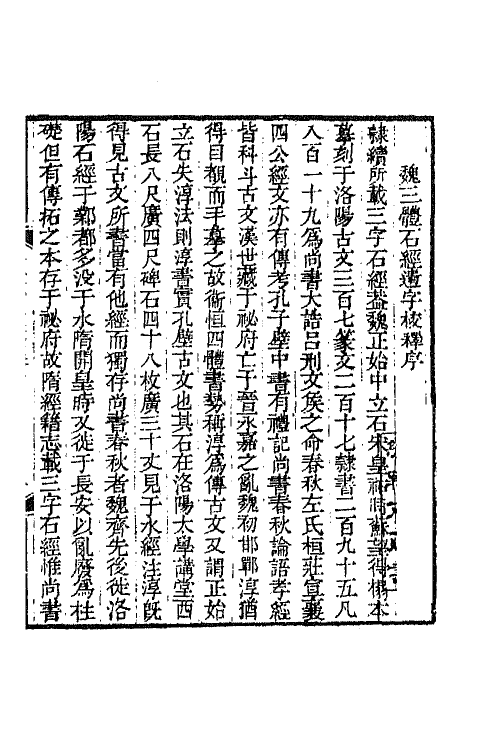 魏三體石經遺字校釋序
隸續所載三字石經葢魏正始中立石宋皇祐時蘇望得榻本
摹刻于洛陽古文三百七篆文二百十七隸書二百九十五凡
八百一十九爲尚書大誥呂刑文侯之命春秋左氏桓莊宣襄
四公經文亦有傳考孔子壁中書有禮記尚書春秋論語孝經
皆科斗古文漢世藏于祕府亡于晉永嘉之亂魏初邯鄲淳猶
得目覩而手摹之故衞恒四體書勢稱淳爲傳古文又謂正始
立石失淳法則淳書實孔壁古文也其石在洛陽太學講堂西
石長八尺廣四尺碑石四十八枚廣三十丈見于水經注淳旣
得見古文所書當有他經而獨存尚書春秋者魏齊先後徙洛
陽石經于鄴都多没于水隋開皇時又徙于長安以亂廢爲柱
礎但有傳拓之本存于祕府故隋經籍志載三字石經惟尚書